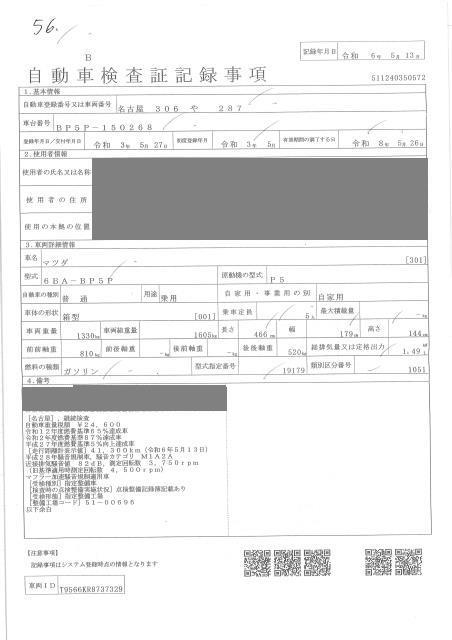 56.
B
記録年月日 令和 6年 5月 13日
自動車検査証記録事項
511240350572
1.基本情報
自動車登録番号又は車両番号 名古屋 306 や 287
車台番号 BP5P-150268
登録年月日/交付年月日 令和 3年 5月 27日 初度登録年月 令和 3年 5月 有効期間の満了する日 令和 8年 5月 26日
2.使用者情報
使用者の氏名又は名称
使用者の住所
使用の本拠の位置
3.車両詳細情報
車名 マツダ [301]
型式 6BA-BP5P 原動機の型式 P5
自動車の種別 普通 用途 乗用 自家用・事業用の別 自家用
車体の形状 箱型 [001] 乗車定員 5人 最大積載量 -kg
車両重量 1330kg 車両総重量 1605kg 長さ 466cm 幅 179cm 高さ 144cm
前前軸重 810kg 前後軸重 -kg 後前軸重 -kg 後後軸重 520kg 総排気量又は定格出力 1.49L
燃料の種類 ガソリン 型式指定番号 19179 類別区分番号 1051
4.備考
[名古屋],継続検査
自動車重量税額 ¥24,600
令和12年度燃費基準65%達成車
令和2年度燃費基準87%達成車
平成27年度燃費基準5%向上達成車
[走行距離計表示値] 41,300km (令和6年5月13日)
平成28年騒音規制車,騒音カテゴリ M1A2A
近接排気騒音値 82dB,測定回転数 3,750rpm
(旧基準適用時測定回転数 4,500rpm)
マフラー加速騒音規制適用車
[受検種別] 指定整備車
[検査時の点検整備実施状況] 点検整備記録簿記載あり
[受検形態] 指定整備工場
[整備工場コード] 51-00696
以下余白
【注意事項】
記録事項はシステム登録時点の情報となります
車両ID T9566KR8737329